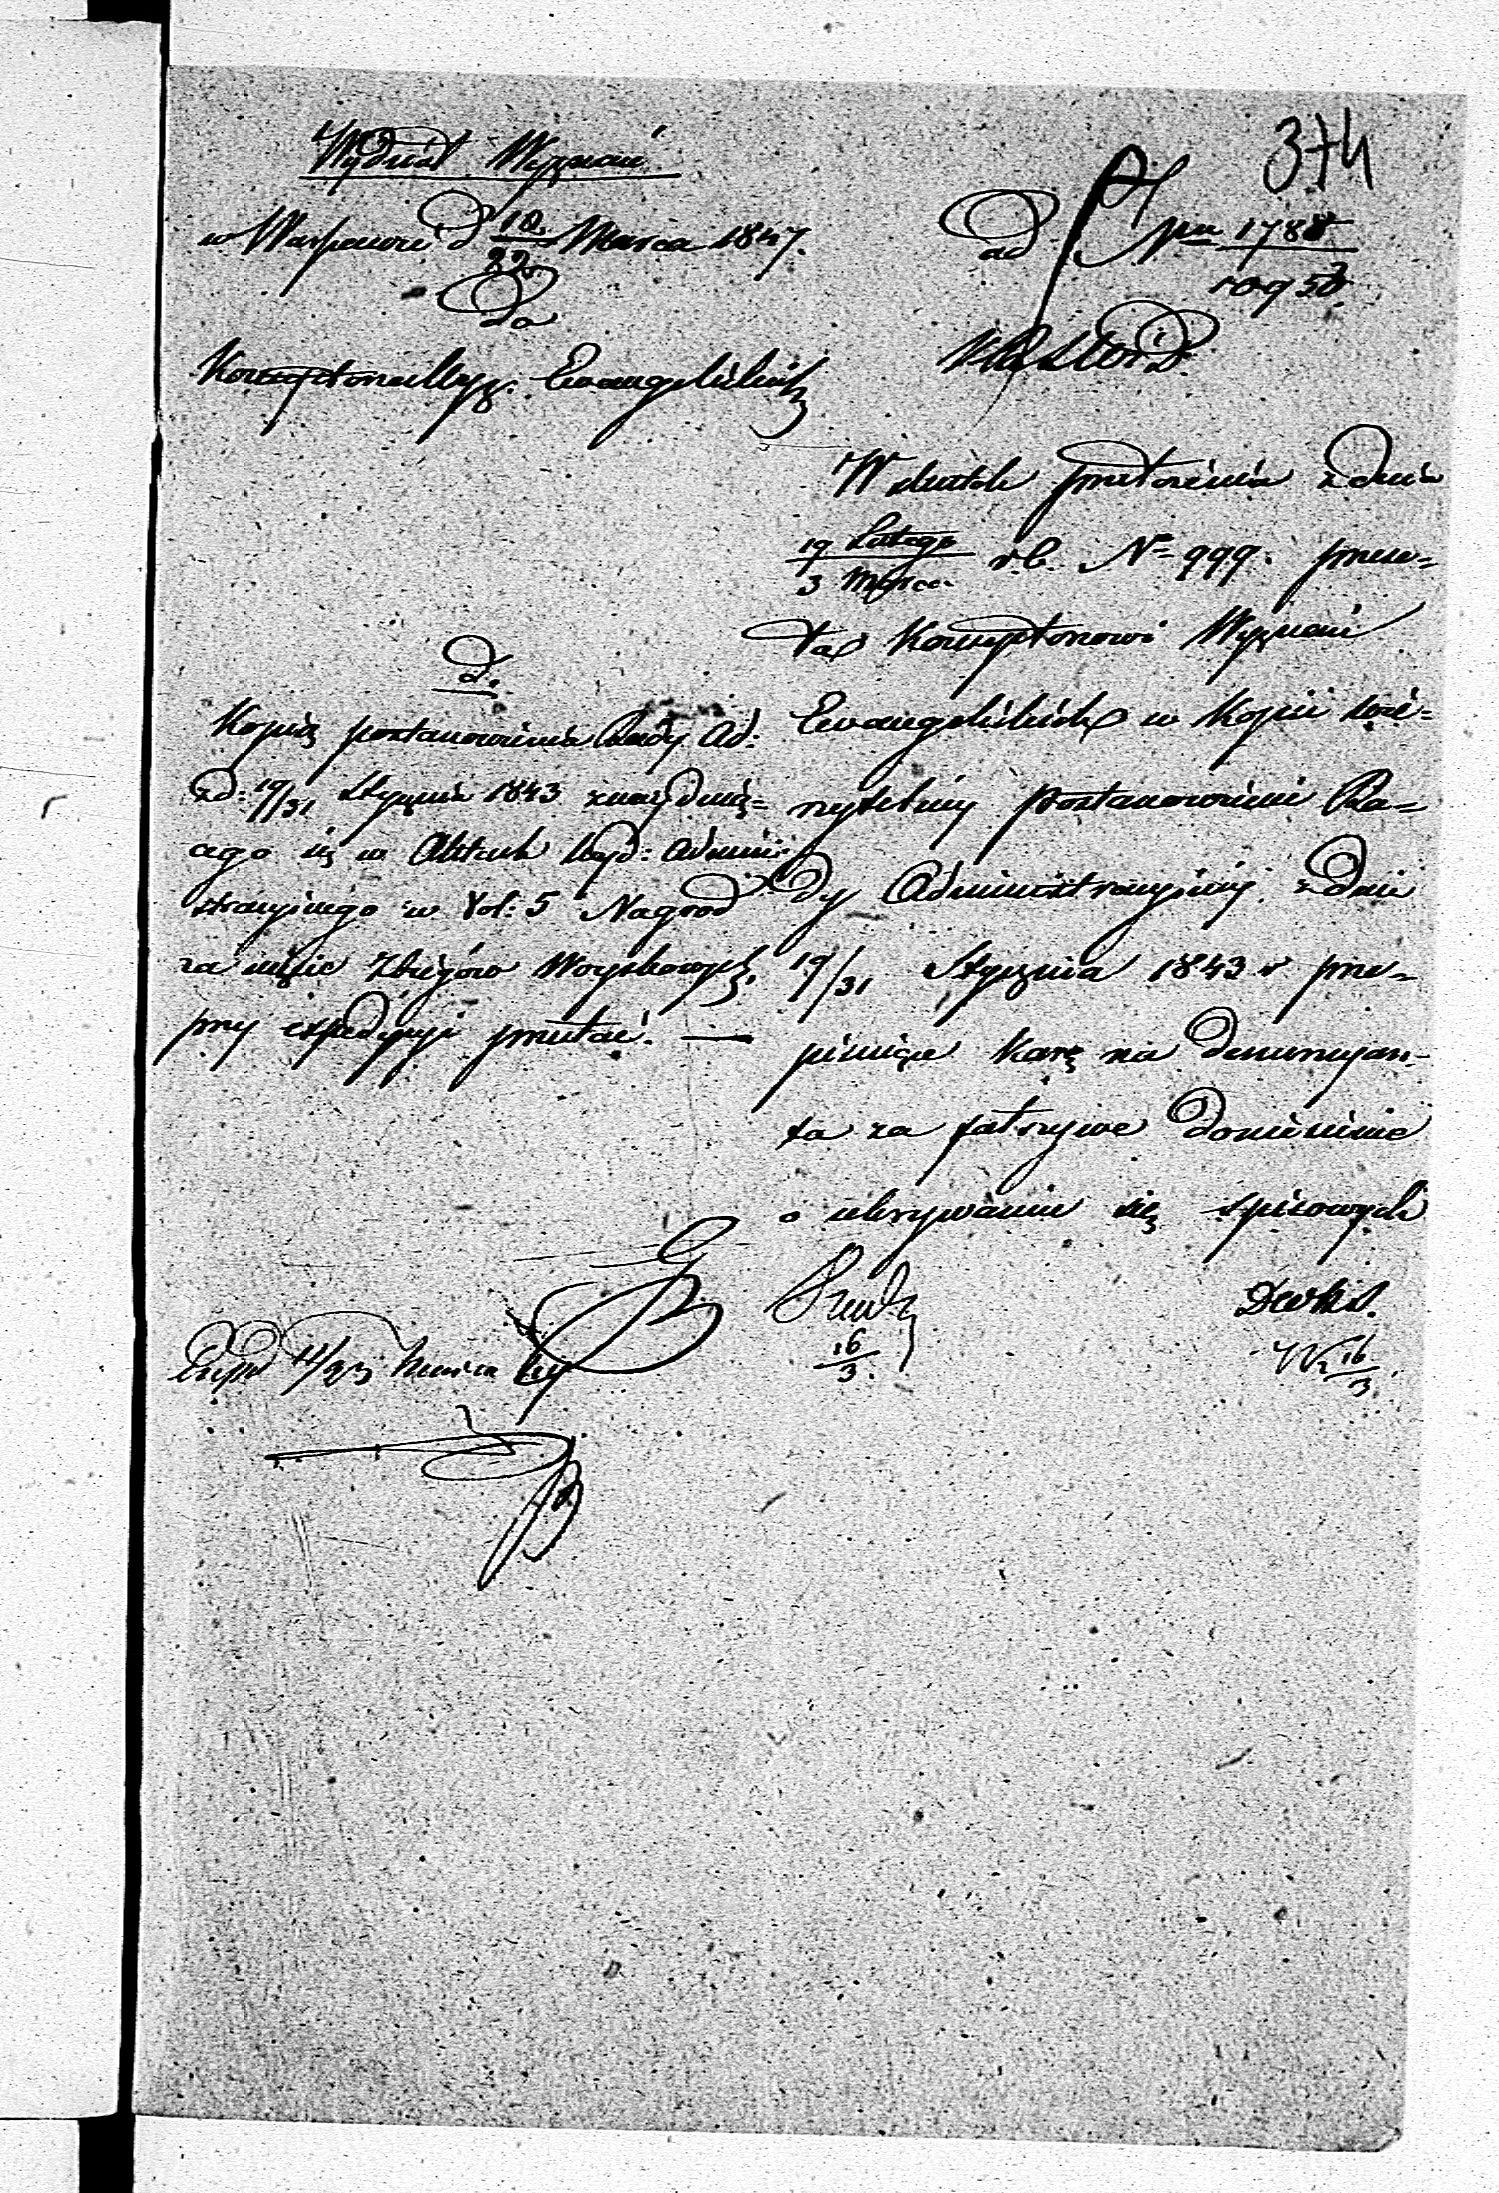 374
Wydział Wyznań
w Warszawie d 10/22 Marca 1847.
Do
Konsystorza Wyz. Ewangelickich
ad Nru 1788/10950
W skutek przełożenia z dnia
19 Lutego/3 Marca r.b. N 999. przesy-
ła Konsystorzowi Wyznań
Ewangelickich w Kopii
Postanowienie Ra-
dy Administracyjnej z dnia
19/31 Stycznia 1843 r prze-
pisujące karę na denuncyan-
ta za fałszywe doniesienie
o ukrywaniu się spisowych
d.
Kopię postanowienia Rady Ad:
z d: 19/31 Stycznia 1843 znajdują-
cego się w Aktach Wyd: Admini-
stracyjnego w Vol: 5 Nagród
za ujęcie Zbiegów Woyskowych,
przy expedycyi przesłać. —
16/3
16/3
Exped 11/23 Marca